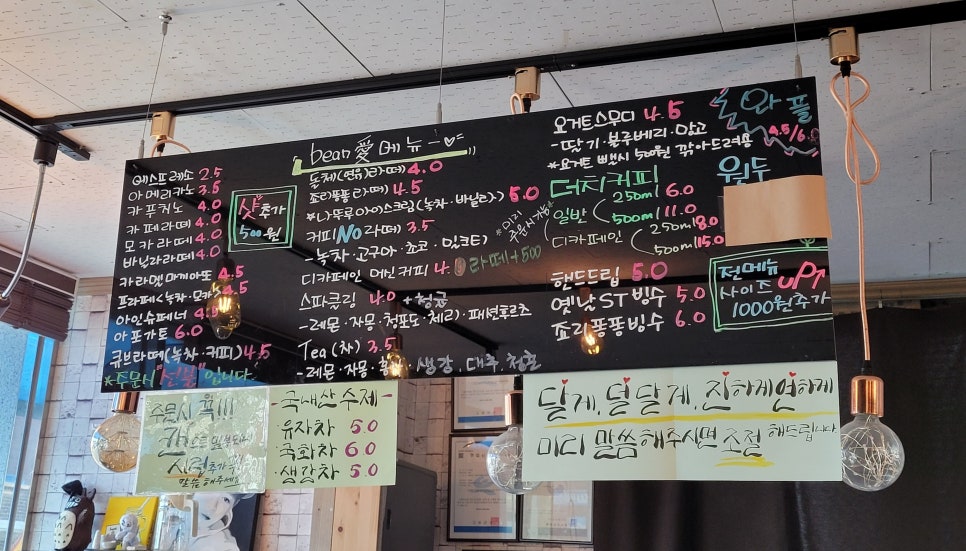 bean愛 메뉴
에스프레소 2.5
아메리카노 3.5
카푸치노 4.0
카페라떼 4.0
모카라떼 4.0
바닐라라떼 4.0
카라멜 마끼아또 4.5
프라페<녹차·모카> 4.5
아인슈페너 4.5
아포가토 6.0
큐브라떼(녹차·커피) 4.5
*주문시 "선불"입니다.
샷추가
500원
돌체(연유)라떼 4.0
죠리퐁퐁라떼 4.5
*나뚜루아이스크림(녹차·바닐라) 5.0
커피No라떼 3.5
-녹차·고구마·쵸코·밀크티)
*미리
주문시가능*
디카페인 머신커피 4.
라떼+500
스파클링 4.0 +청귤
-레몬·자몽·청포도·체리·패션후르츠
Tea(차) 3.5
-레몬·자몽· 생강, 대추, 청귤
요거트스무디 4.5
-딸기·블루베리·망고
*요거트 뺄시 500원 깎아드려용
더치커피
일반 250ml 6.0
500ml 11.0
디카페인 250ml 8.0
500ml 15.0
핸드드립 5.0
옛날ST빙수 5.0
죠리퐁퐁빙수 6.0
와플
4.5/6.0
원두
전메뉴
사이즈 UP↑
1000원추가
주문시
시럽추가
말씀해주세요
국내산 수제
·유자차 5.0
·국화차 6.0
·생강차 5.0
달게, 덜달게, 진하게 연하게
미리 말씀해주시면 조절 해드립니다